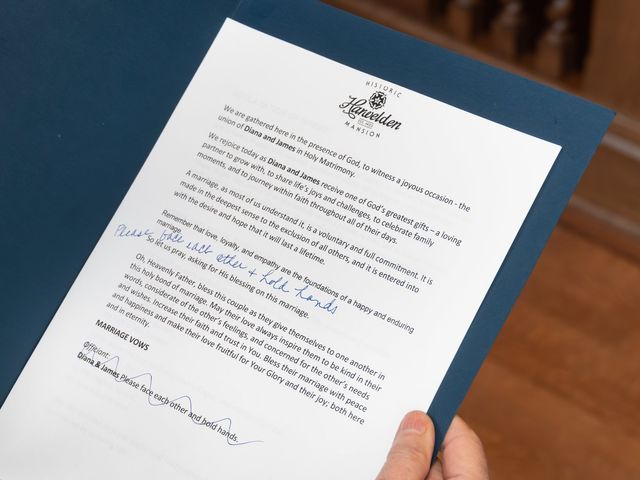 HISTORIC
Harwelden
MANSION
We are gathered here in the presence of God, to witness a joyous occasion - the
union of Diana and James in Holy Matrimony.
We rejoice today as Diana and James receive one of God's greatest gifts – a loving
partner to grow with, to share life's joys and challenges, to celebrate family
moments, and to journey within faith throughout all of their days.
A marriage, as most of us understand it, is a voluntary and full commitment. It is
made in the deepest sense to the exclusion of all others, and it is entered into
with the desire and hope that it will last a lifetime.
Remember that love, loyalty, and empathy are the foundations of a happy and enduring
marriage.
Please face each other & hold hands
So let us pray, asking for His blessing on this marriage.
Oh, Heavenly Father, bless this couple as they give themselves to one another in
this holy bond of marriage. May their love always inspire them to be kind in their
words, considerate of the other's feelings, and concerned for the other's needs
and wishes. Increase their faith and trust in You. Bless their marriage with peace
and happiness and make their love fruitful for Your Glory and their joy; both here
and in eternity.
MARRIAGE VOWS
Officiant:
Diana & James Please face each other and hold hands